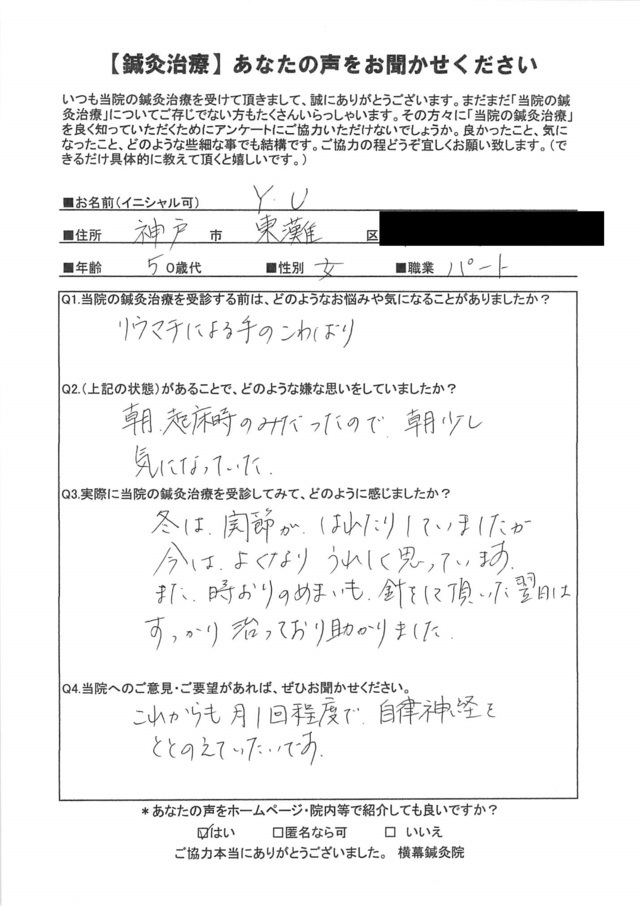 【鍼灸治療】あなたの声をお聞かせください
いつも当院の鍼灸治療を受けて頂きまして、誠にありがとうございます。まだまだ「当院の鍼
灸治療」についてご存じでない方もたくさんいらっしゃいます。その方々に「当院の鍼灸治療」
を良く知っていただくためにアンケートにご協力いただけないでしょうか。良かったこと、気に
なったこと、どのような些細な事でも結構です。ご協力の程どうぞ宜しくお願い致します。（で
きるだけ具体的に教えて頂くと嬉しいです。）
■お名前（イニシャル可） Y.U
■住所 神戸 市 東灘 区
■年齢 50歳代 ■性別 女 ■職業 パート
Q1.当院の鍼灸治療を受診する前は、どのようなお悩みや気になることがありましたか？
リウマチによる手のこわばり
Q2.（上記の状態）があることで、どのような嫌な思いをしていましたか？
朝、起床時のみだったので、朝少し
気になっていた。
Q3.実際に当院の鍼灸治療を受診してみて、どのように感じましたか？
冬は、関節が、はれたりしていましたが
今は、よくなり うれしく思っています。
また、時おりのめまいも、針をして頂いた翌日は
すっかり治っており助かりました。
Q4.当院へのご意見・ご要望があれば、ぜひお聞かせください。
これからも月1回程度で、自律神経を
ととのえていたいです。
＊あなたの声をホームページ・院内等で紹介しても良いですか？
☑はい □匿名なら可 □ いいえ
ご協力本当にありがとうございました。 横幕鍼灸院